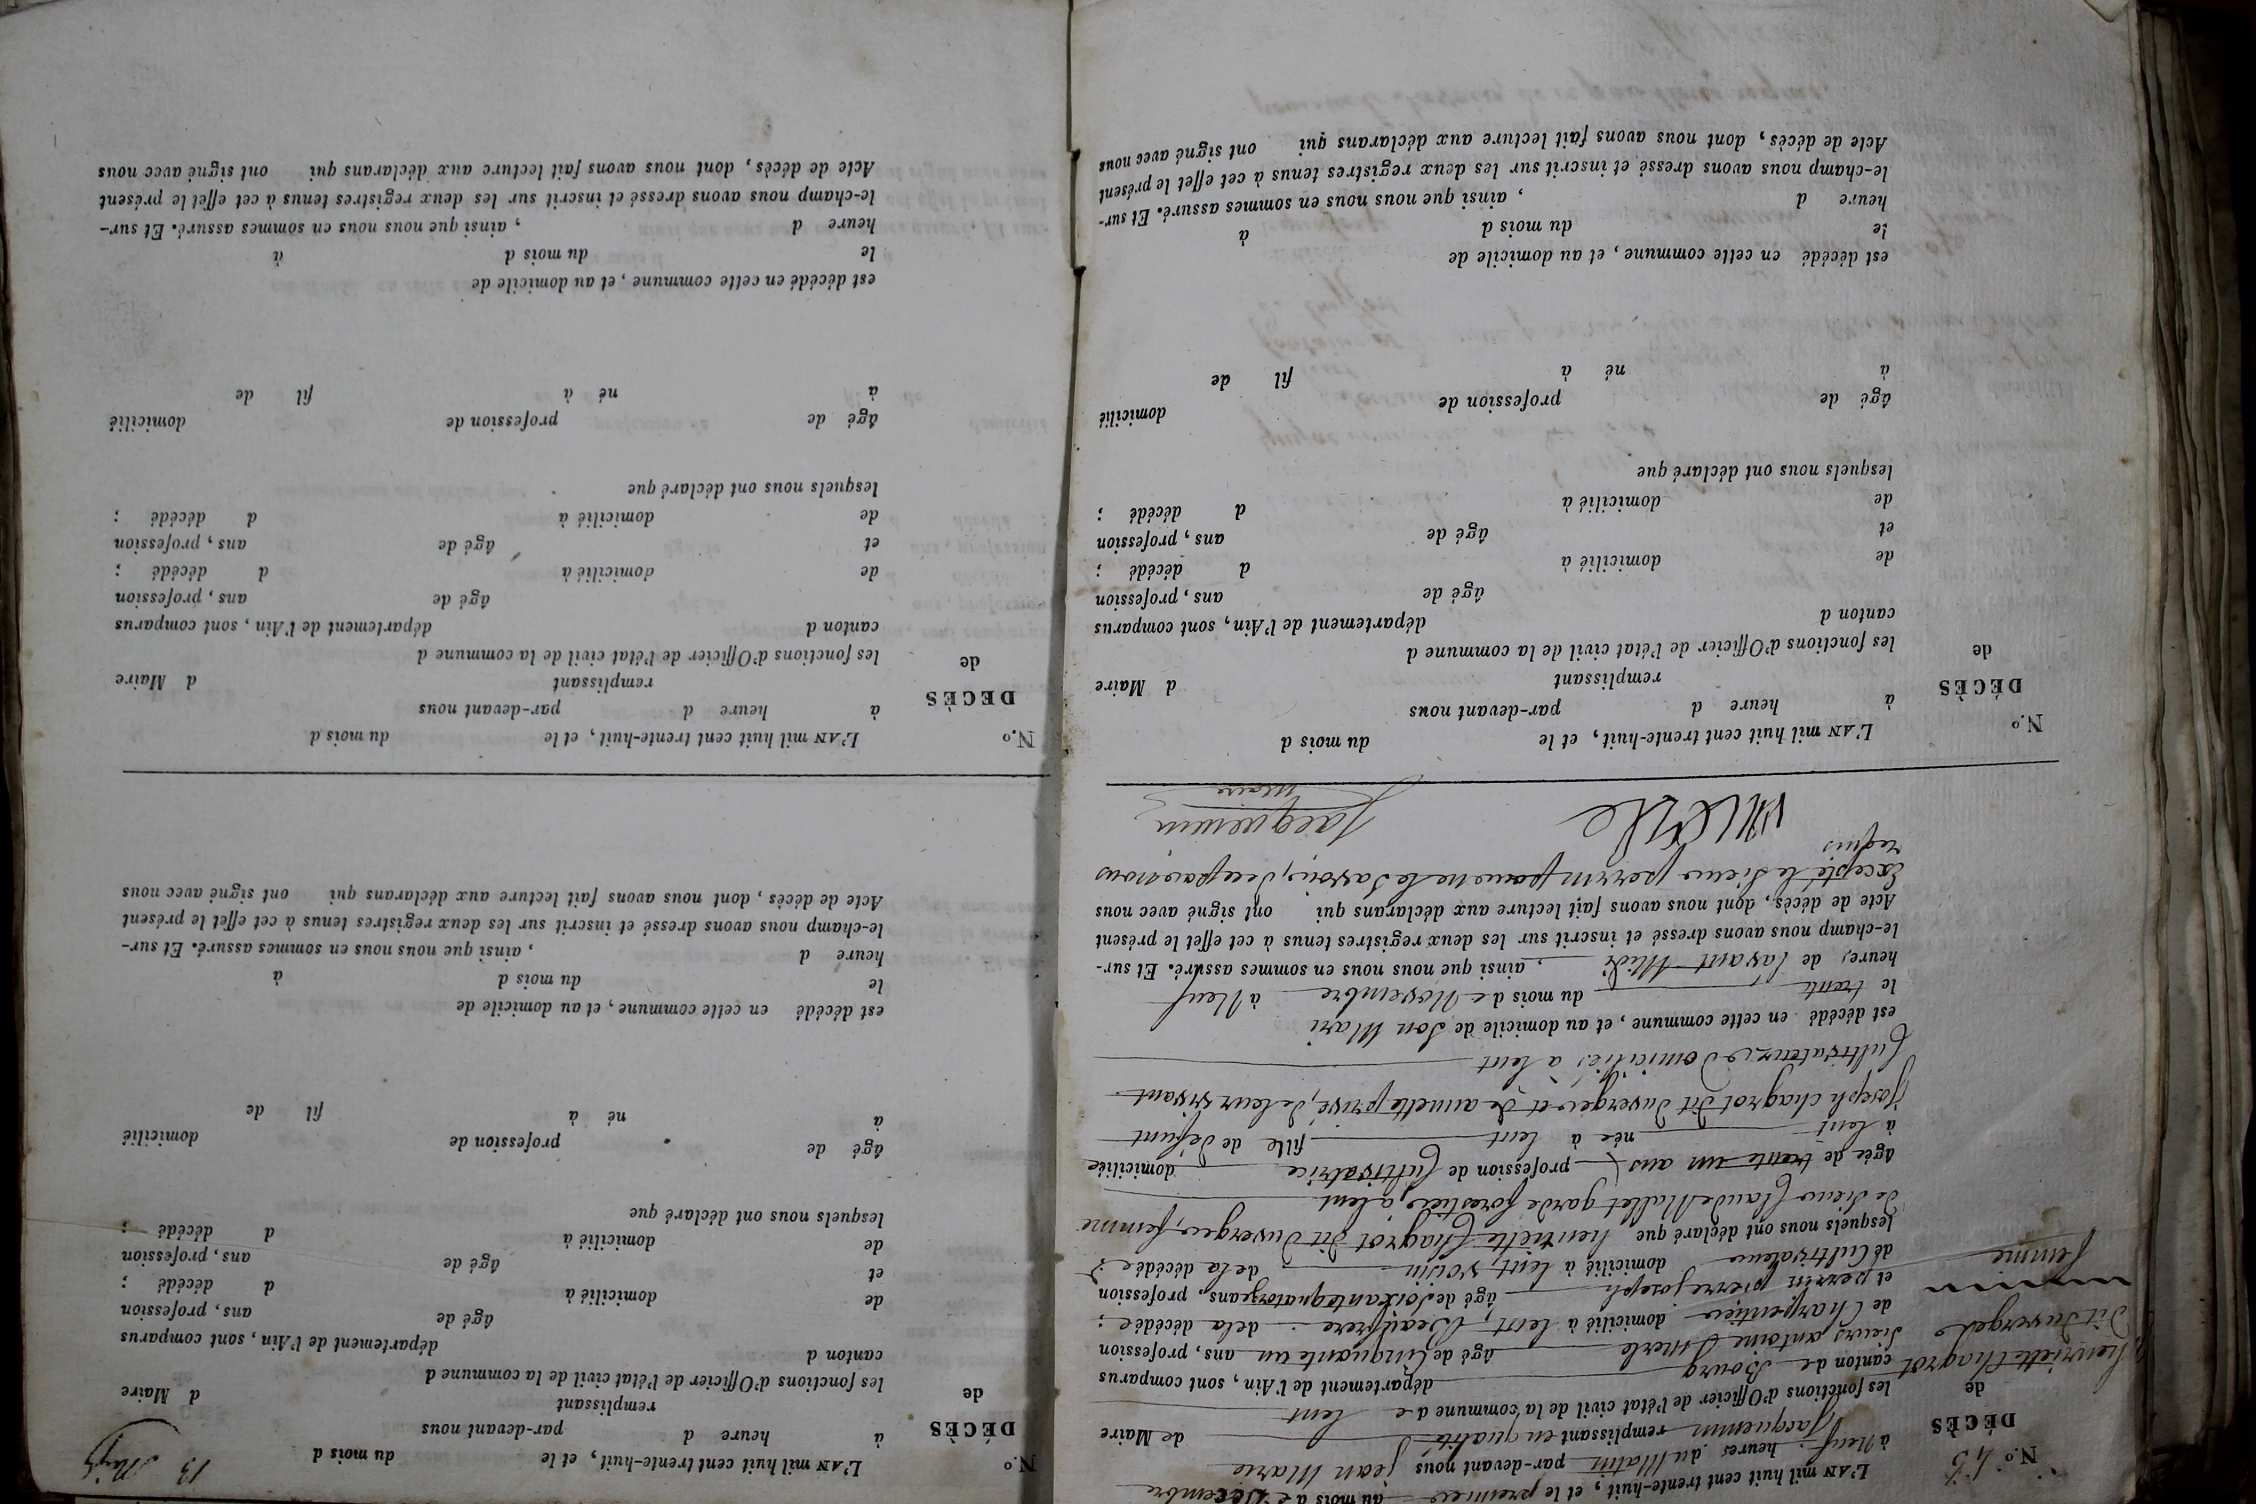 N.º 43
DÉCÈS
de
henriette Chagrot
dit duverger
femme
L'AN mil huit cent trente-huit, et le premier du mois de Décembre
à Neuf heures du Matin par-devant nous jean Marie
Jacquemin remplissant en qualité de Maire
les fonctions d'Officier de l'état civil de la commune de lent
canton de Bourg département de l'Ain, sont comparus
Sieurs antoine merle âgé de Cinquante un ans, profession
de Charpentier domicilié à lent, Beaufrere de la décédée ;
et perrin pierre joseph âgé de Soixante quatorze ans, profession
de Cultivateur domicilié à lent, voisin de la décédée ;
lesquels nous ont déclaré que henriette Chagrot dit Duverger, femme
de Sieur Claude Mallet garde forestier, à lent
âgée de trente un ans profession de Cultivatrice domiciliée
à lent née à lent fille de défunt
joseph chagrot dit duverger et de annette privé, de leur vivant
Cultivateurs domiciliés à lent
est décédé en cette commune, et au domicile de Son Mari
le trente du mois de Novembre à Neuf
heures de l'avant Midi, ainsi que nous nous en sommes assuré. Et sur-
le-champ nous avons dressé et inscrit sur les deux registres tenus à cet effet le présent
Acte de décès, dont nous avons fait lecture aux déclarans qui ont signé avec nous
Excepté le Sieur perrin pour ne le Savoir, de ce par nous
requis
merle
Jacquemin
maire
N.º
DÉCÈS
de
L'AN mil huit cent trente-huit, et le du mois d
à heure d par-devant nous
remplissant d Maire
les fonctions d'Officier de l'état civil de la commune d
canton d département de l'Ain, sont comparus
âgé de ans, profession
de domicilié à d décédé ;
et âgé de ans, profession
de domicilié à d décédé ;
lesquels nous ont déclaré que
âgé de profession de domicilié
à né à fil de
est décédé en cette commune, et au domicile de
le du mois d à
heure d , ainsi que nous nous en sommes assuré. Et sur-
le-champ nous avons dressé et inscrit sur les deux registres tenus à cet effet le présent
Acte de décès, dont nous avons fait lecture aux déclarans qui ont signé avec nous
13
N.º
DÉCÈS
de
L'AN mil huit cent trente-huit, et le du mois d
à heure d par-devant nous
remplissant d Maire
les fonctions d'Officier de l'état civil de la commune d
canton d département de l'Ain, sont comparus
âgé de ans, profession
de domicilié à d décédé ;
et âgé de ans, profession
de domicilié à d décédé ;
lesquels nous ont déclaré que
âgé de profession de domicilié
à né à fil de
est décédé en cette commune, et au domicile de
le du mois d à
heure d , ainsi que nous nous en sommes assuré. Et sur-
le-champ nous avons dressé et inscrit sur les deux registres tenus à cet effet le présent
Acte de décès, dont nous avons fait lecture aux déclarans qui ont signé avec nous
N.º
DECÈS
de
L'AN mil huit cent trente-huit, et le du mois d
à heure d par-devant nous
remplissant d Maire
les fonctions d'Officier de l'état civil de la commune d
canton d département de l'Ain, sont comparus
âgé de ans, profession
de domicilié à d décédé ;
et âgé de ans, profession
de domicilié à d décédé ;
lesquels nous ont déclaré que
âgé de profession de domicilié
à né à fil de
est décédé en cette commune, et au domicile de
le du mois d à
heure d , ainsi que nous nous en sommes assuré. Et sur-
le-champ nous avons dressé et inscrit sur les deux registres tenus à cet effet le présent
Acte de décès, dont nous avons fait lecture aux déclarans qui ont signé avec nous